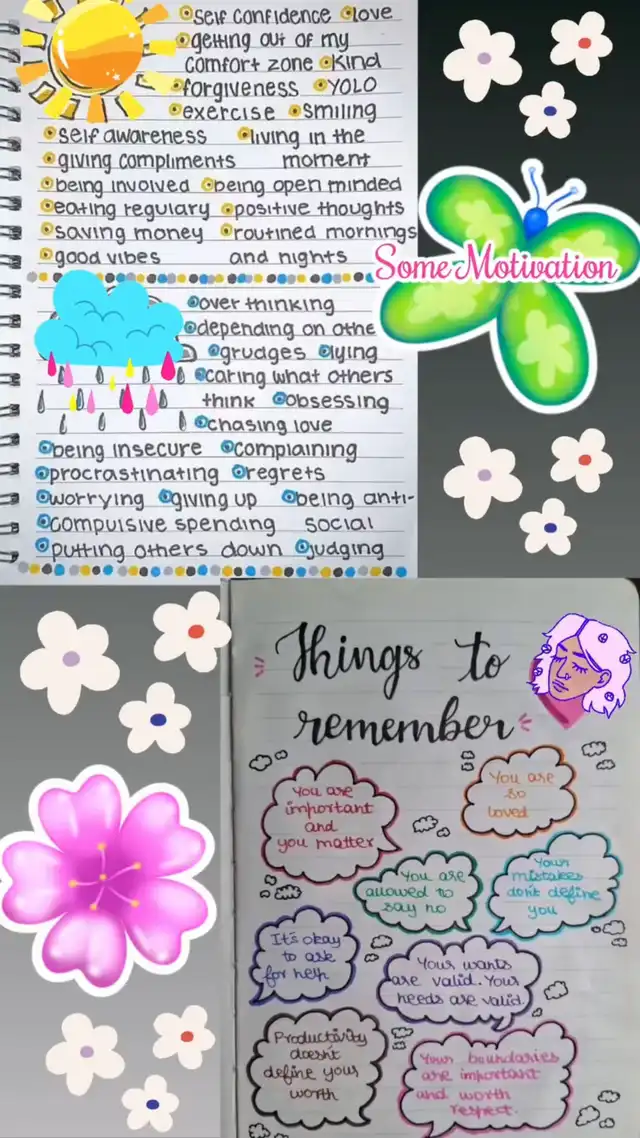 self confidence love
getting out of my
comfort zone kind
forgiveness YOLO
exercise smiling
self awareness living in the
giving compliments moment
being involved being open minded
eating regulary positive thoughts
saving money routined mornings
good vibes and nights
Some Motivation
over thinking
depending on othe
grudges lying
caring what others
think obsessing
chasing love
being insecure complaining
procrastinating regrets
worrying giving up being anti-
compulsive spending social
putting others down judging
Things to
remember
You are
important
and
you matter
You are
so
loved
You are
allowed to
say no
Your
mistakes
don't define
you
It's okay
to ask
for help
Your wants
are valid. Your
needs are valid.
Productivity
doesn't
define your
worth
Your boundaries
are important
and worth
respect.